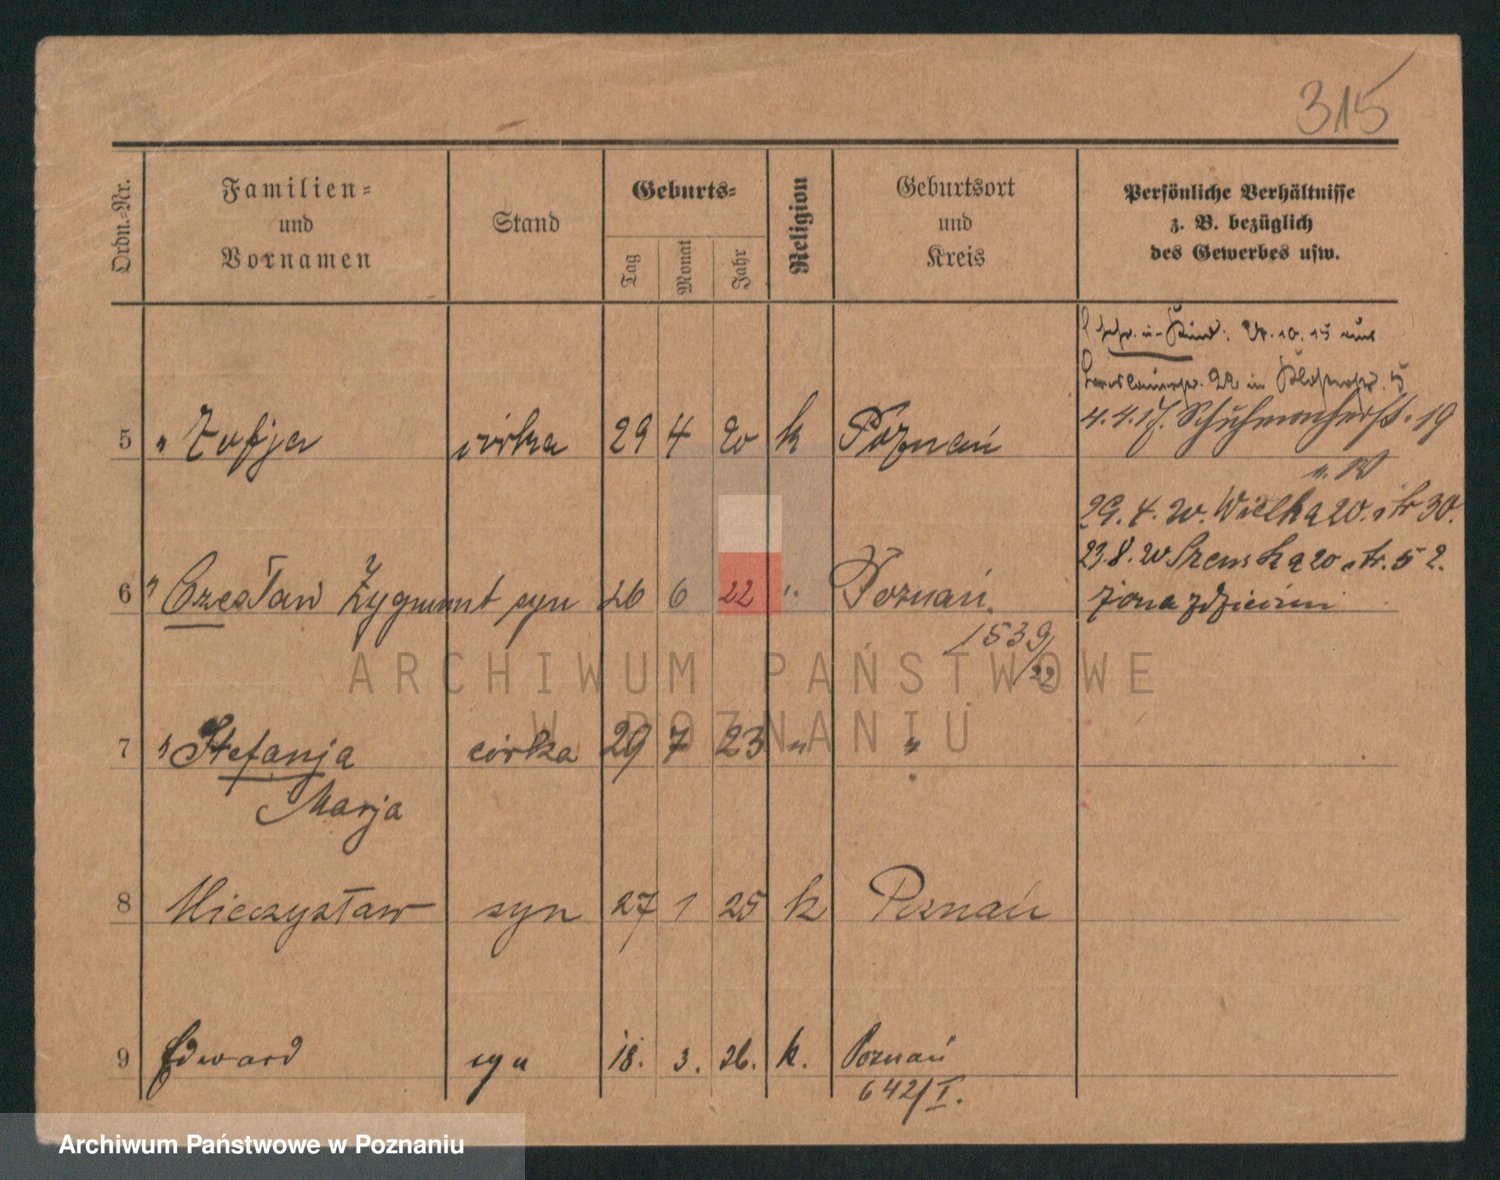 315
Ordn.-Nr.
Familien-
und
Vornamen
Stand
Geburts-
Tag
Monat
Jahr
Religion
Geburtsort
und
Kreis
Persönliche Verhältnisse
z. B. bezüglich
des Gewerbes usw.
5 " Zofja córka 29 4 20 k Poznań
4.4.17. 19
29. 4. 20. Wielka 20. str 30.
23.8.20 str. 52.
żona z dziećmi
6 " Czesław Zygmunt syn 26 6 22 " Poznań.
1539/22
7 " Stefanja córka 29 7 23 " "
Marja
8 Mieczysław syn 27 1 25 k Poznań
9 Edward syn 18. 3. 26. k. Poznań
642/I.
ARCHIWUM PAŃSTWOWE
W POZNANIU
Archiwum Państwowe w Poznaniu